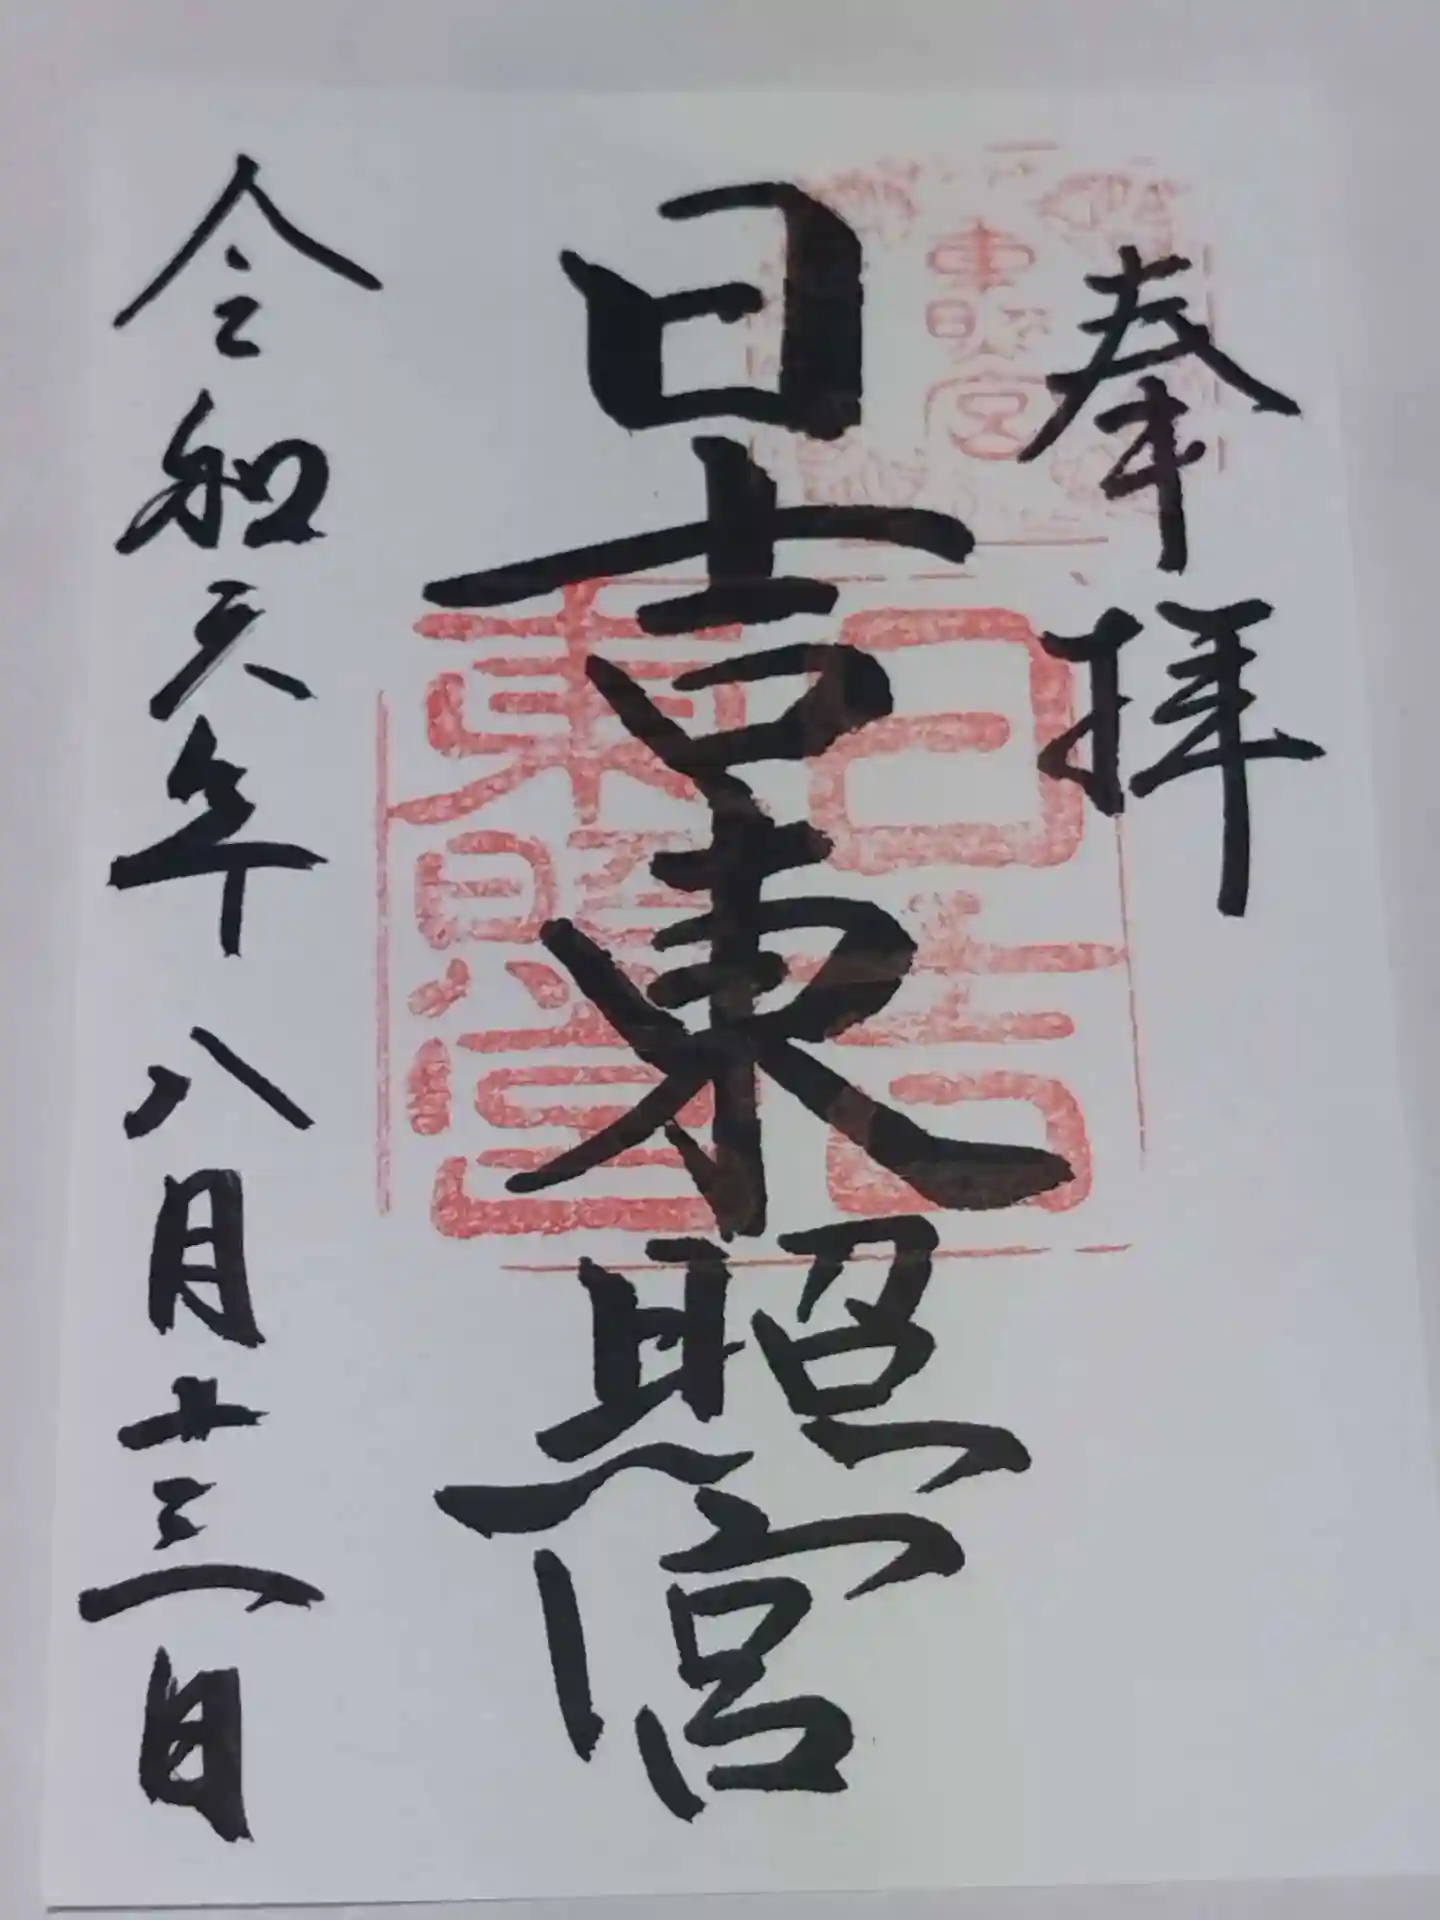 奉拝
東照宮
日吉東照宮
日吉
東照宮
令和六年八月十三日